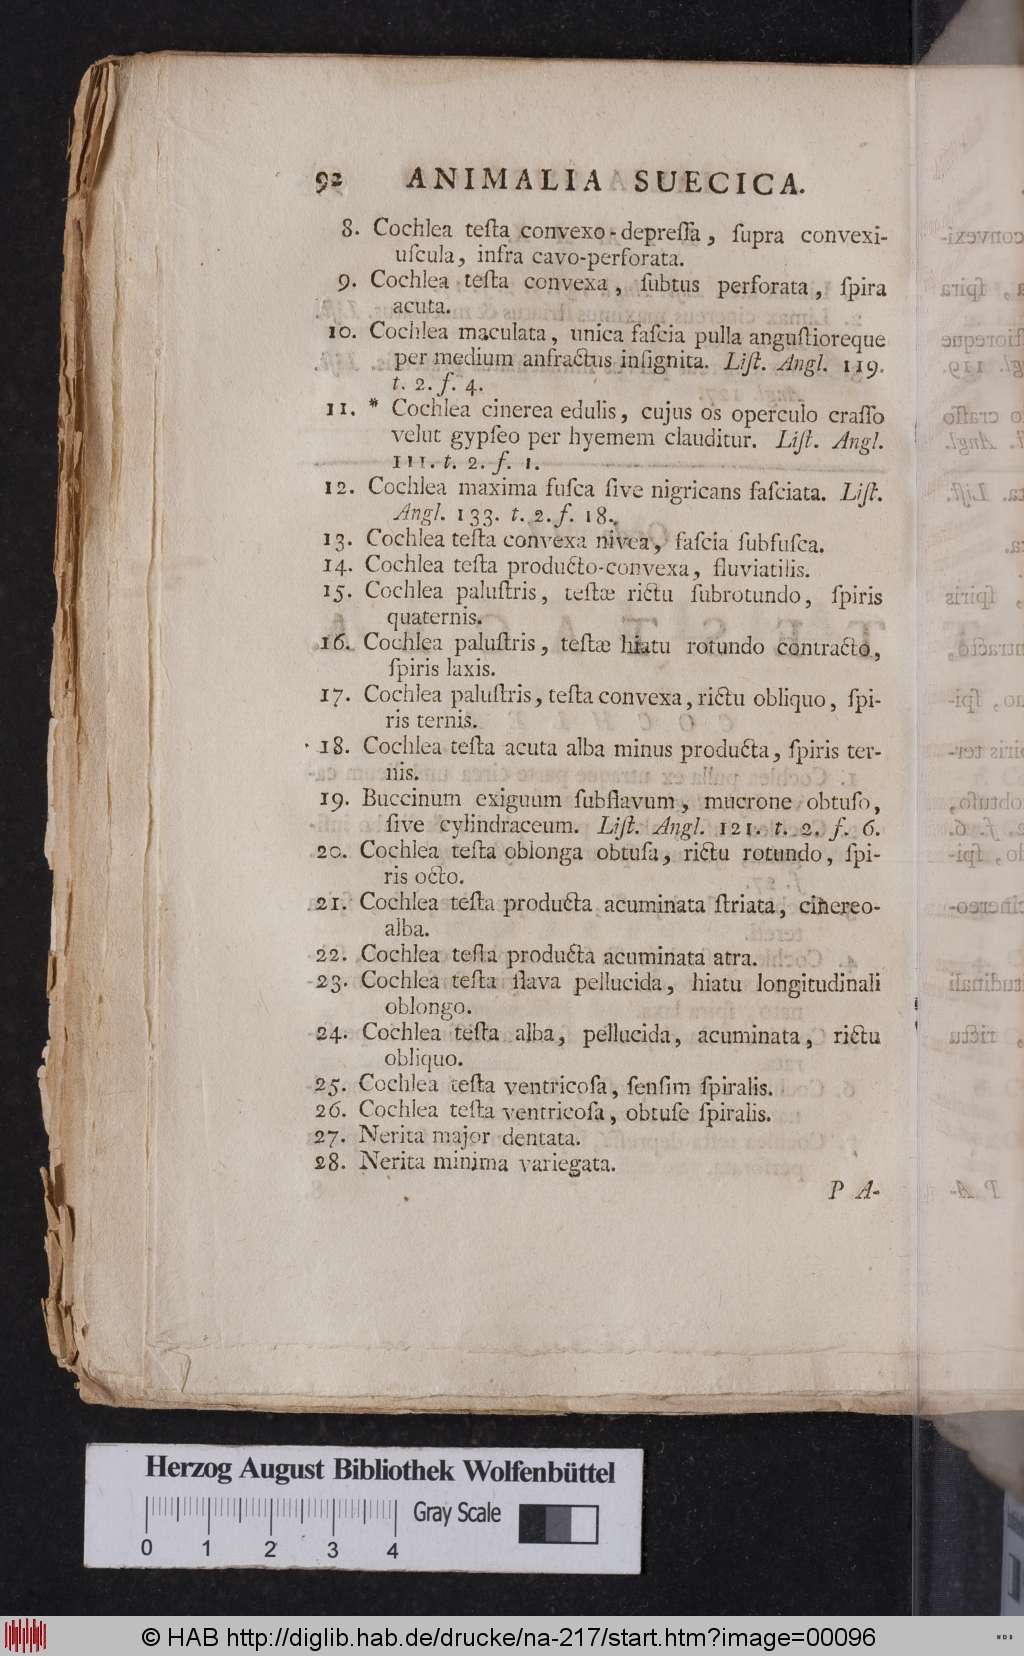 92 ANIMALIA SUECICA.
8. Cochlea teſta convexo-depreſſa, ſupra convexi-
uſcula, infra cavo-perforata.
9. Cochlea teſta convexa, ſubtus perforata, ſpira
acuta.
10. Cochlea maculata, unica faſcia pulla anguſtioreque
per medium anfractus inſignita. Liſt. Angl. 119.
t. 2. f. 4.
11. * Cochlea cinerea edulis, cujus os operculo craſſo
velut gypſeo per hyemem clauditur. Liſt. Angl.
111. t. 2. f. 1.
12. Cochlea maxima fuſca ſive nigricans faſciata. Liſt.
Angl. 133. t. 2. f. 18.
13. Cochlea teſta convexa nivea, faſcia ſubfuſca.
14. Cochlea teſta producto-convexa, fluviatilis.
15. Cochlea paluſtris, teſtæ rictu ſubrotundo, ſpiris
quaternis.
16. Cochlea paluſtris, teſtæ hiatu rotundo contracto,
ſpiris laxis.
17. Cochlea paluſtris, teſta convexa, rictu obliquo, ſpi-
ris ternis.
18. Cochlea teſta acuta alba minus producta, ſpiris ter-
nis.
19. Buccinum exiguum ſubflavum, mucrone obtuſo,
ſive cylindraceum. Liſt. Angl. 121. t. 2. f. 6.
20. Cochlea teſta oblonga obtuſa, rictu rotundo, ſpi-
ris octo.
21. Cochlea teſta producta acuminata ſtriata, cinereo-
alba.
22. Cochlea teſta producta acuminata atra.
23. Cochlea teſta flava pellucida, hiatu longitudinali
oblongo.
24. Cochlea teſta alba, pellucida, acuminata, rictu
obliquo.
25. Cochlea teſta ventricoſa, ſenſim ſpiralis.
26. Cochlea teſta ventricoſa, obtuſe ſpiralis.
27. Nerita major dentata.
28. Nerita minima variegata.
P A-
Herzog August Bibliothek Wolfenbüttel
Gray Scale
0 1 2 3 4
© HAB http://diglib.hab.de/drucke/na-217/start.htm?image=00096